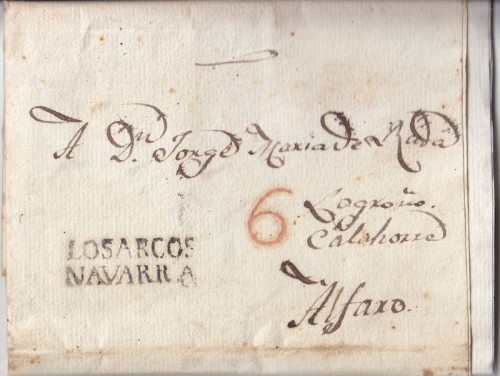 A Dn. Jorge Maria de Rada
6
Logroño.
Calahorra
LOS ARCOS
NAVARRA
Alfaro.